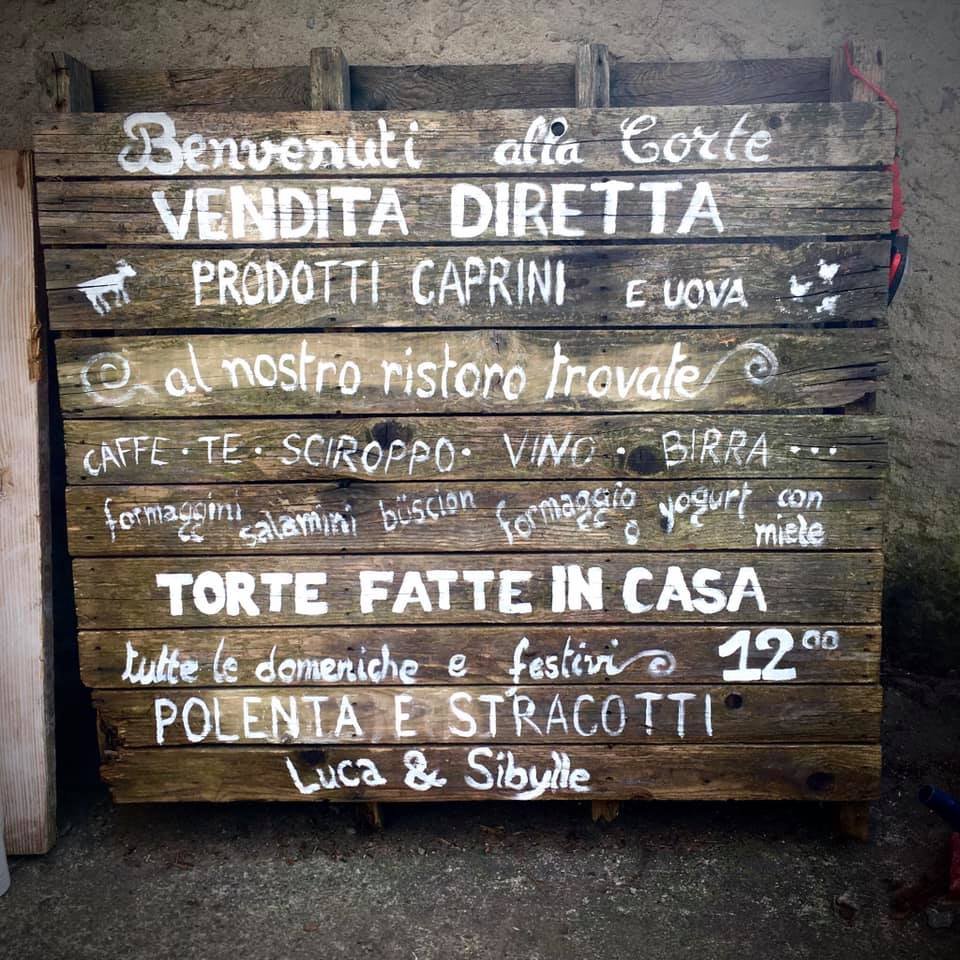 Benvenuti alla Corte
VENDITA DIRETTA
PRODOTTI CAPRINI E UOVA
al nostro ristoro trovate
CAFFE · TE · SCIROPPO · VINO · BIRRA ...
formaggini salamini büscion formaggio o yogurt con miele
TORTE FATTE IN CASA
tutte le domeniche e festivi 12⁰⁰
POLENTA E STRACOTTI
Luca & Sibylle